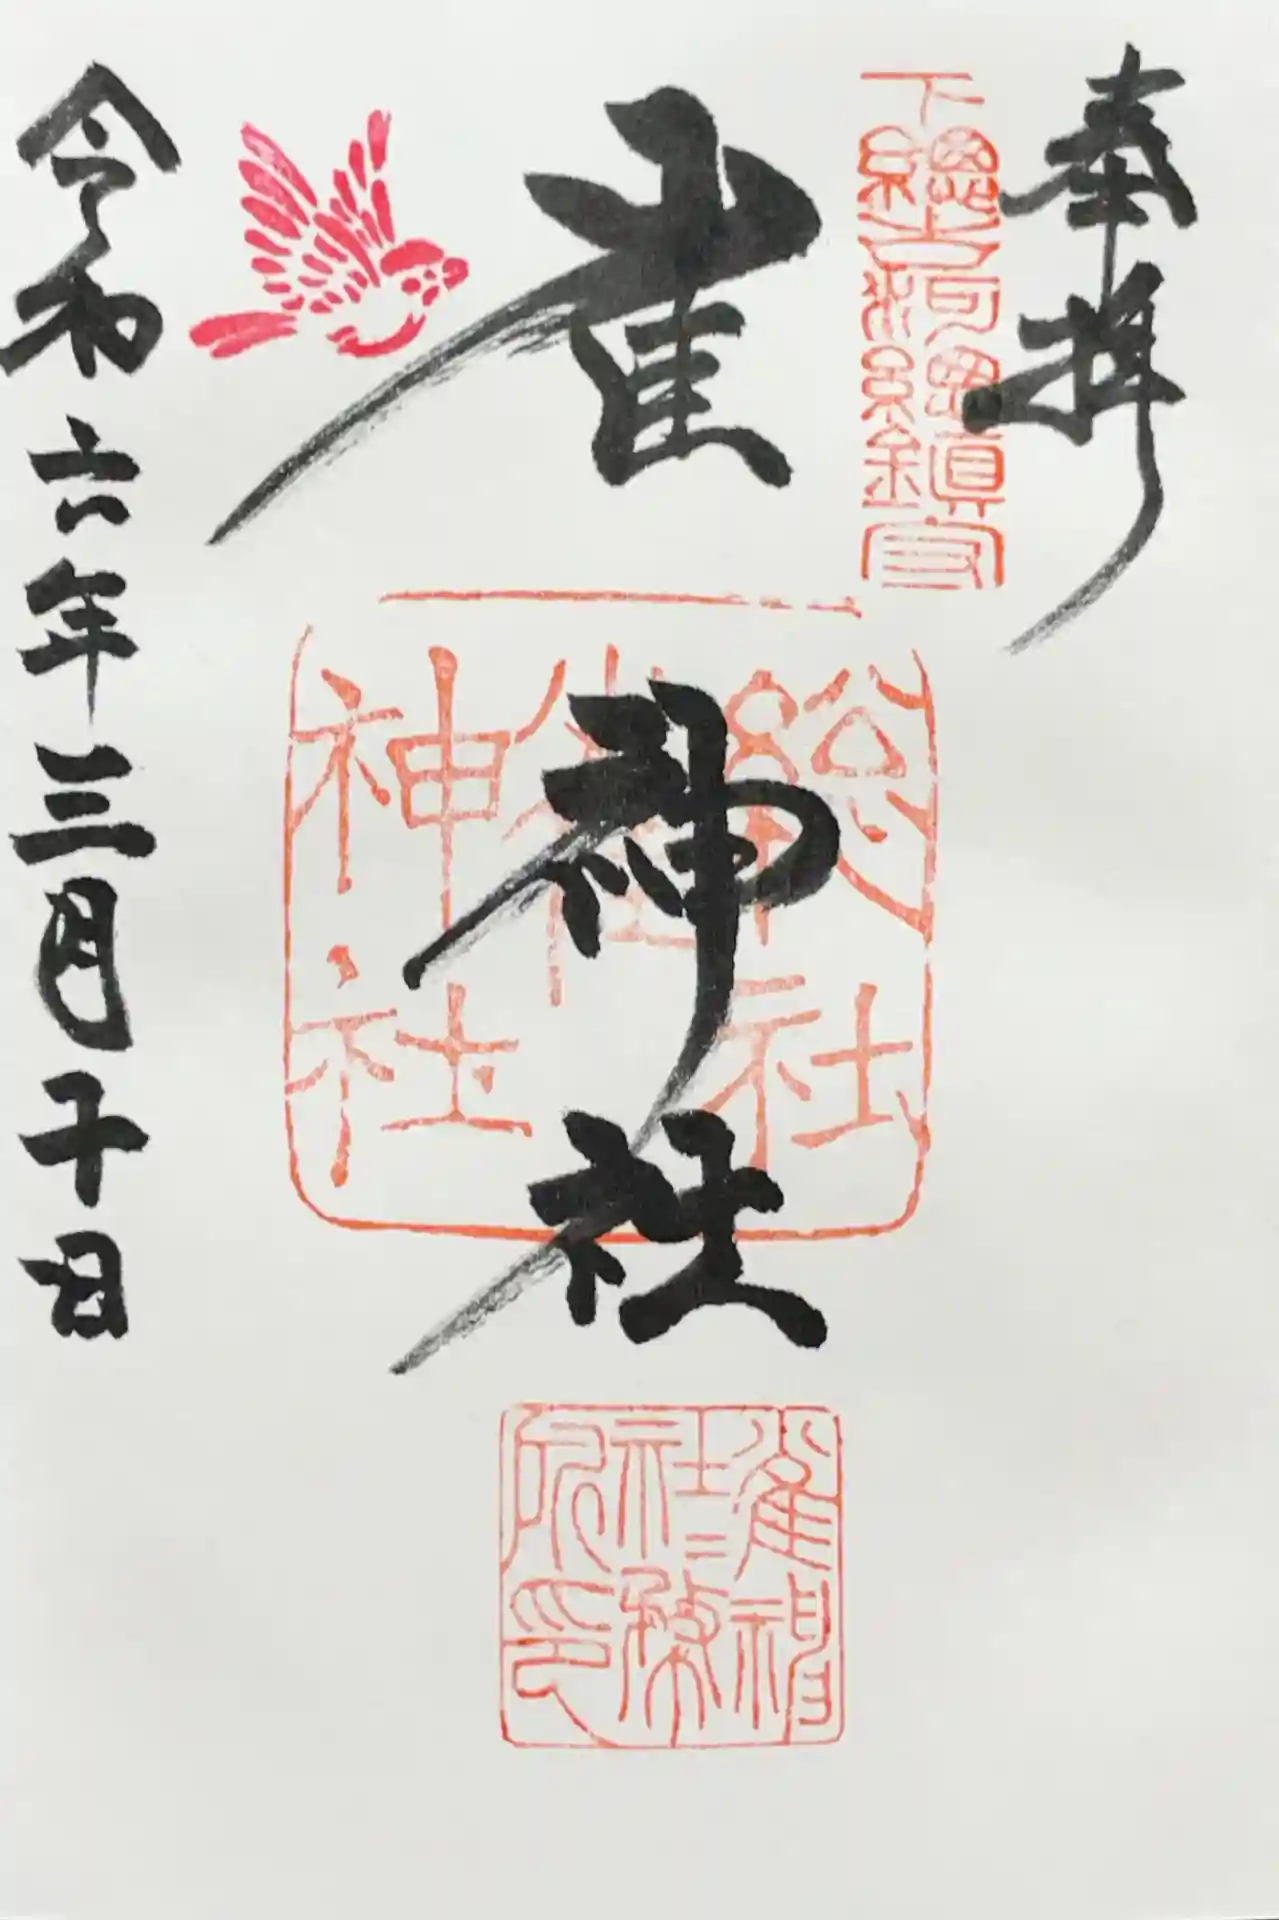 奉拝
下總古河
總鎮守
雀神社
總社
雀
神社
雀神
社務
所印
令和六年三月十日